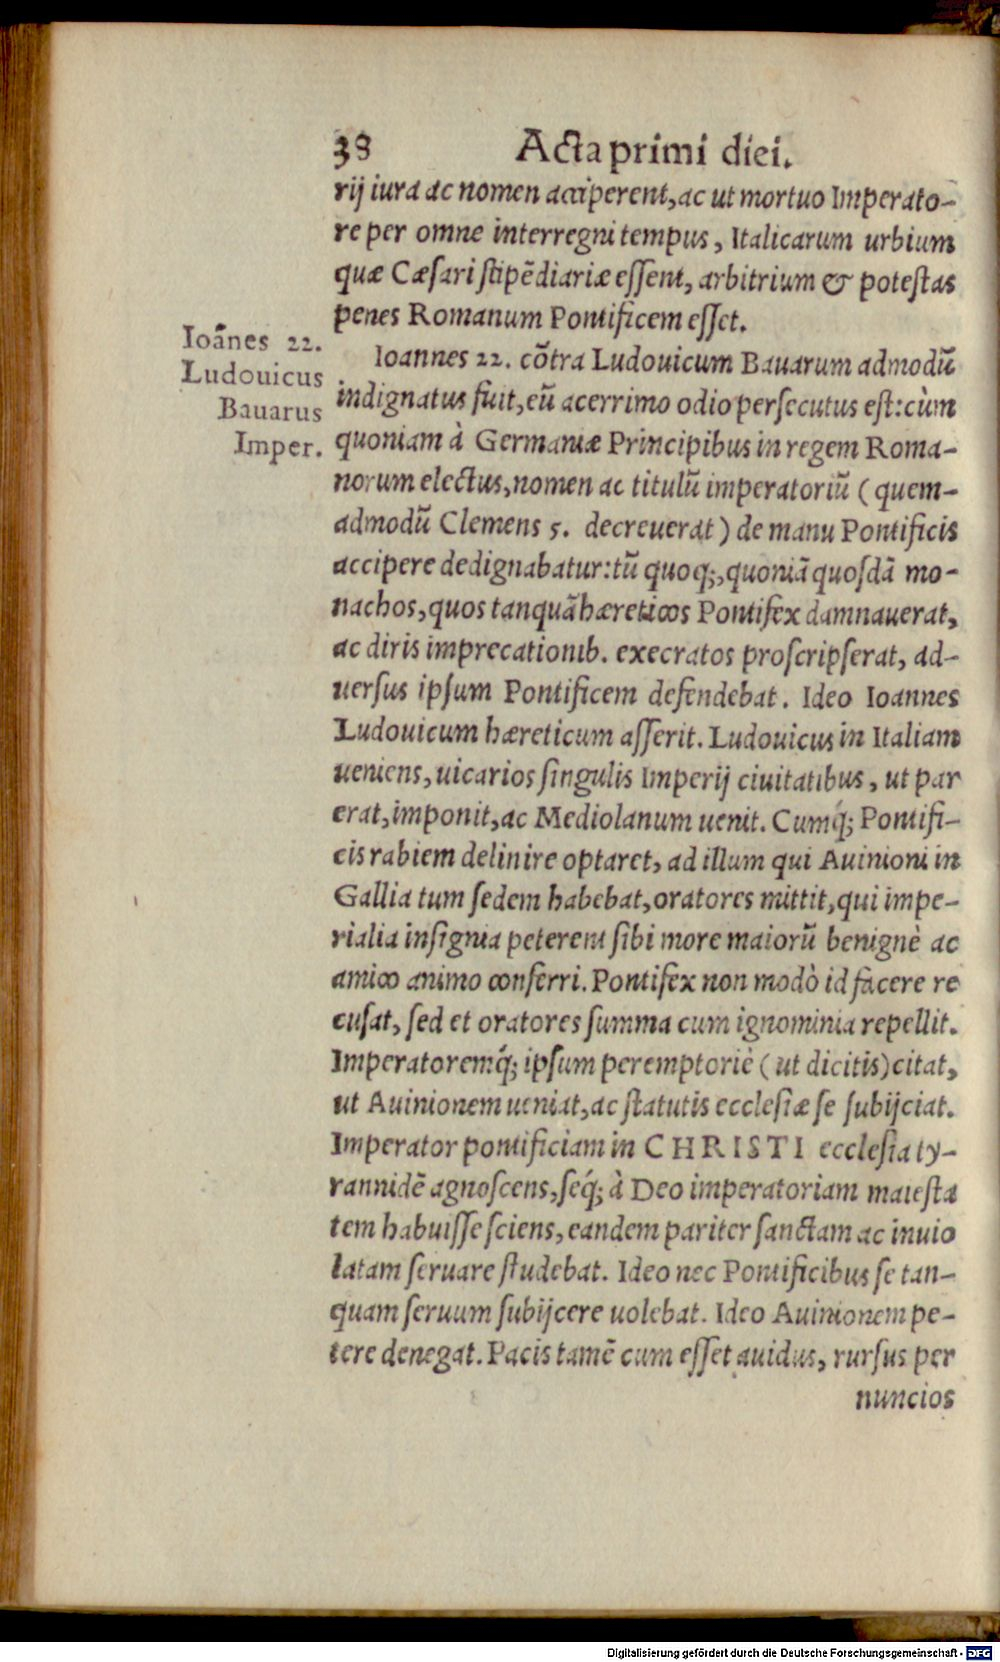 38 Acta primi diei.
rij iura ac nomen acciperent, ac ut mortuo Imperato-
re per omne interregni tempus, Italicarum urbium
quæ Cæsari stipẽdiariæ essent, arbitrium & potestas
penes Romanum Pontificem esset.
Ioãnes 22.
Ludouicus
Bauarus
Imper.
Ioannes 22. cõtra Ludouicum Bauarum admodũ
indignatus fuit, eũ acerrimo odio persecutus est: cùm
quoniam à Germaniæ Principibus in regem Roma-
norum electus, nomen ac titulũ imperatoriũ (quem-
admodũ Clemens 5. decreuerat) de manu Pontificis
accipere dedignabatur: tũ quoq;, quoniã quosdã mo-
nachos, quos tanquã hæreticos Pontifex damnauerat,
ac diris imprecationib. execratos proscripserat, ad-
uersus ipsum Pontificem defendebat. Ideo Ioannes
Ludouicum hæreticum asserit. Ludouicus in Italiam
ueniens, uicarios singulis Imperij ciuitatibus, ut par
erat, imponit, ac Mediolanum uenit. Cumq́; Pontifi-
cis rabiem delinire optaret, ad illum qui Auinioni in
Gallia tum sedem habebat, oratores mittit, qui impe-
rialia insignia peterent sibi more maiorũ benignè ac
amico animo conferri. Pontifex non modò id facere re
cusat, sed et oratores summa cum ignominia repellit.
Imperatoremq́; ipsum peremptoriè (ut dicitis) citat,
ut Auinionem ueniat, ac statutis ecclesiæ se subijciat.
Imperator pontificiam in CHRISTI ecclesia ty-
rannidẽ agnoscens, seq́; à Deo imperatoriam maiesta
tem habuisse sciens, eandem pariter sanctam ac inuio
latam seruare studebat. Ideo nec Pontificibus se tan-
quam seruum subijcere uolebat. Ideo Auinionem pe-
tere denegat. Pacis tamẽ cum esset auidus, rursus per
nuncios
Digitalisierung gefördert durch die Deutsche Forschungsgemeinschaft - DFG